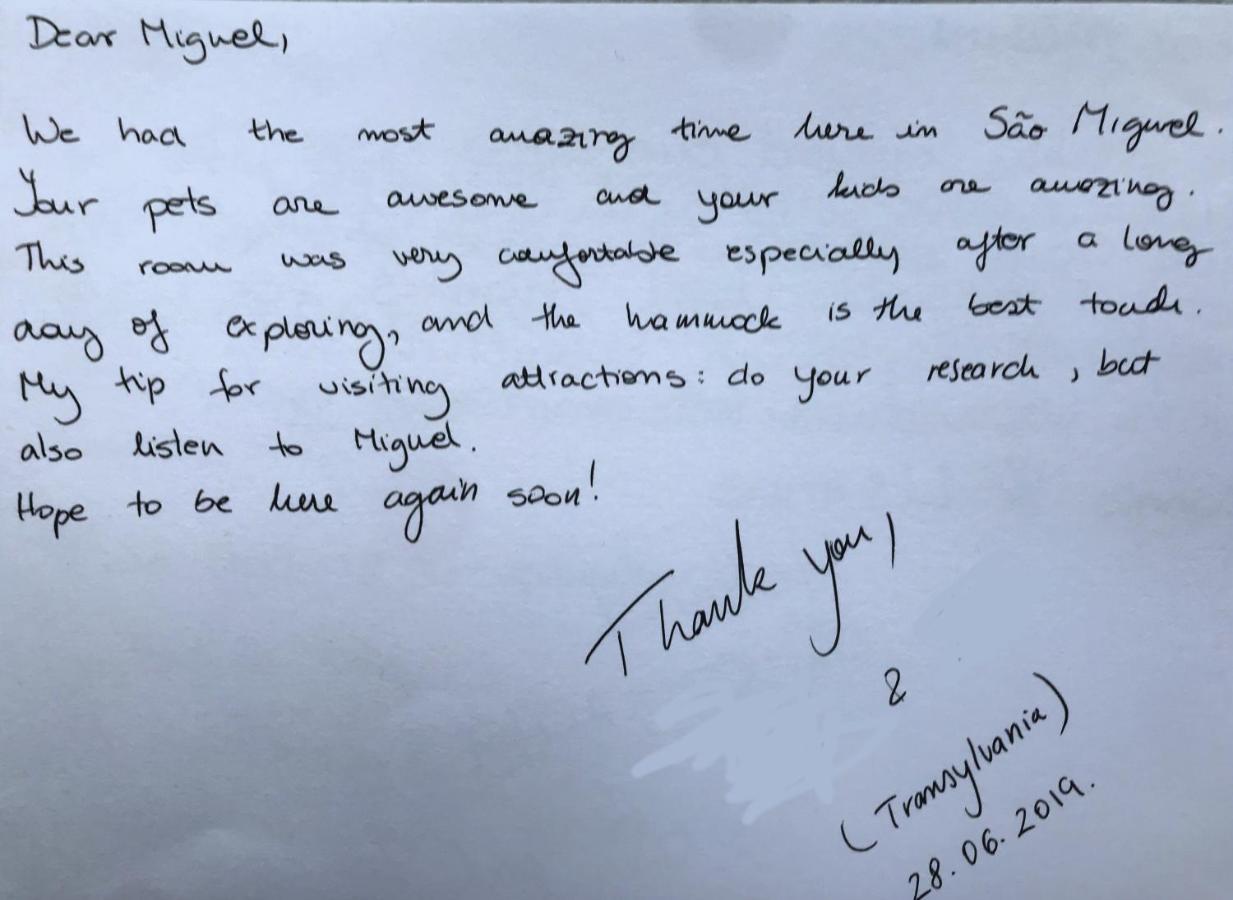 Dear Miguel,
We had the most amazing time here in São Miguel.
Your pets are awesome and your kids are amazing.
This room was very comfortable especially after a long
day of exploring, and the hammock is the best touch.
My tip for visiting attractions: do your research, but
also listen to Miguel.
Hope to be here again soon!
Thank you,
&
(Transylvania)
28.06.2019.